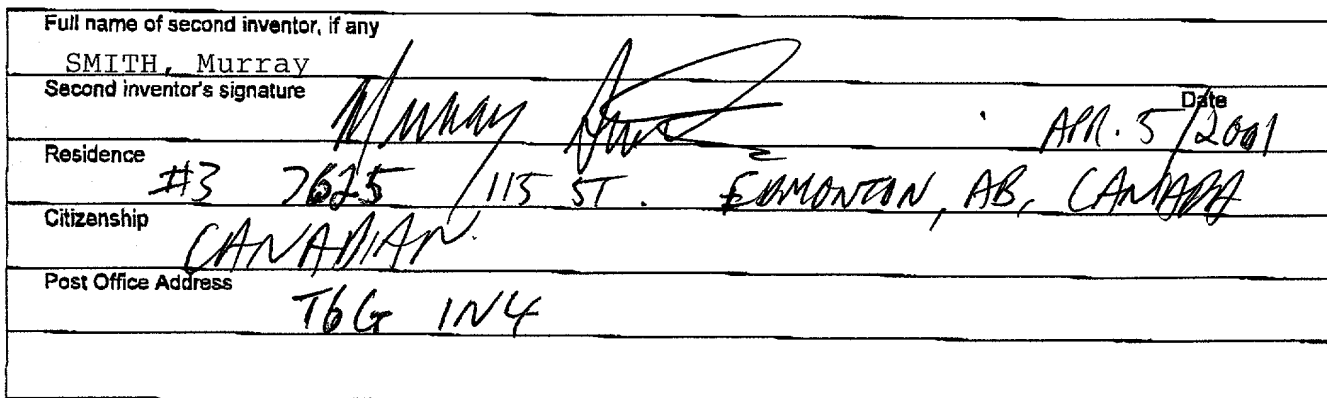 Full name of second inventor, if any
SMITH, Murray
Second inventor's signature
Murray Smith
Date
APR. 5/2001
Residence
#3 7625 115 ST. EDMONTON, AB, CANADA
Citizenship
CANADIAN.
Post Office Address
T6G 1N4